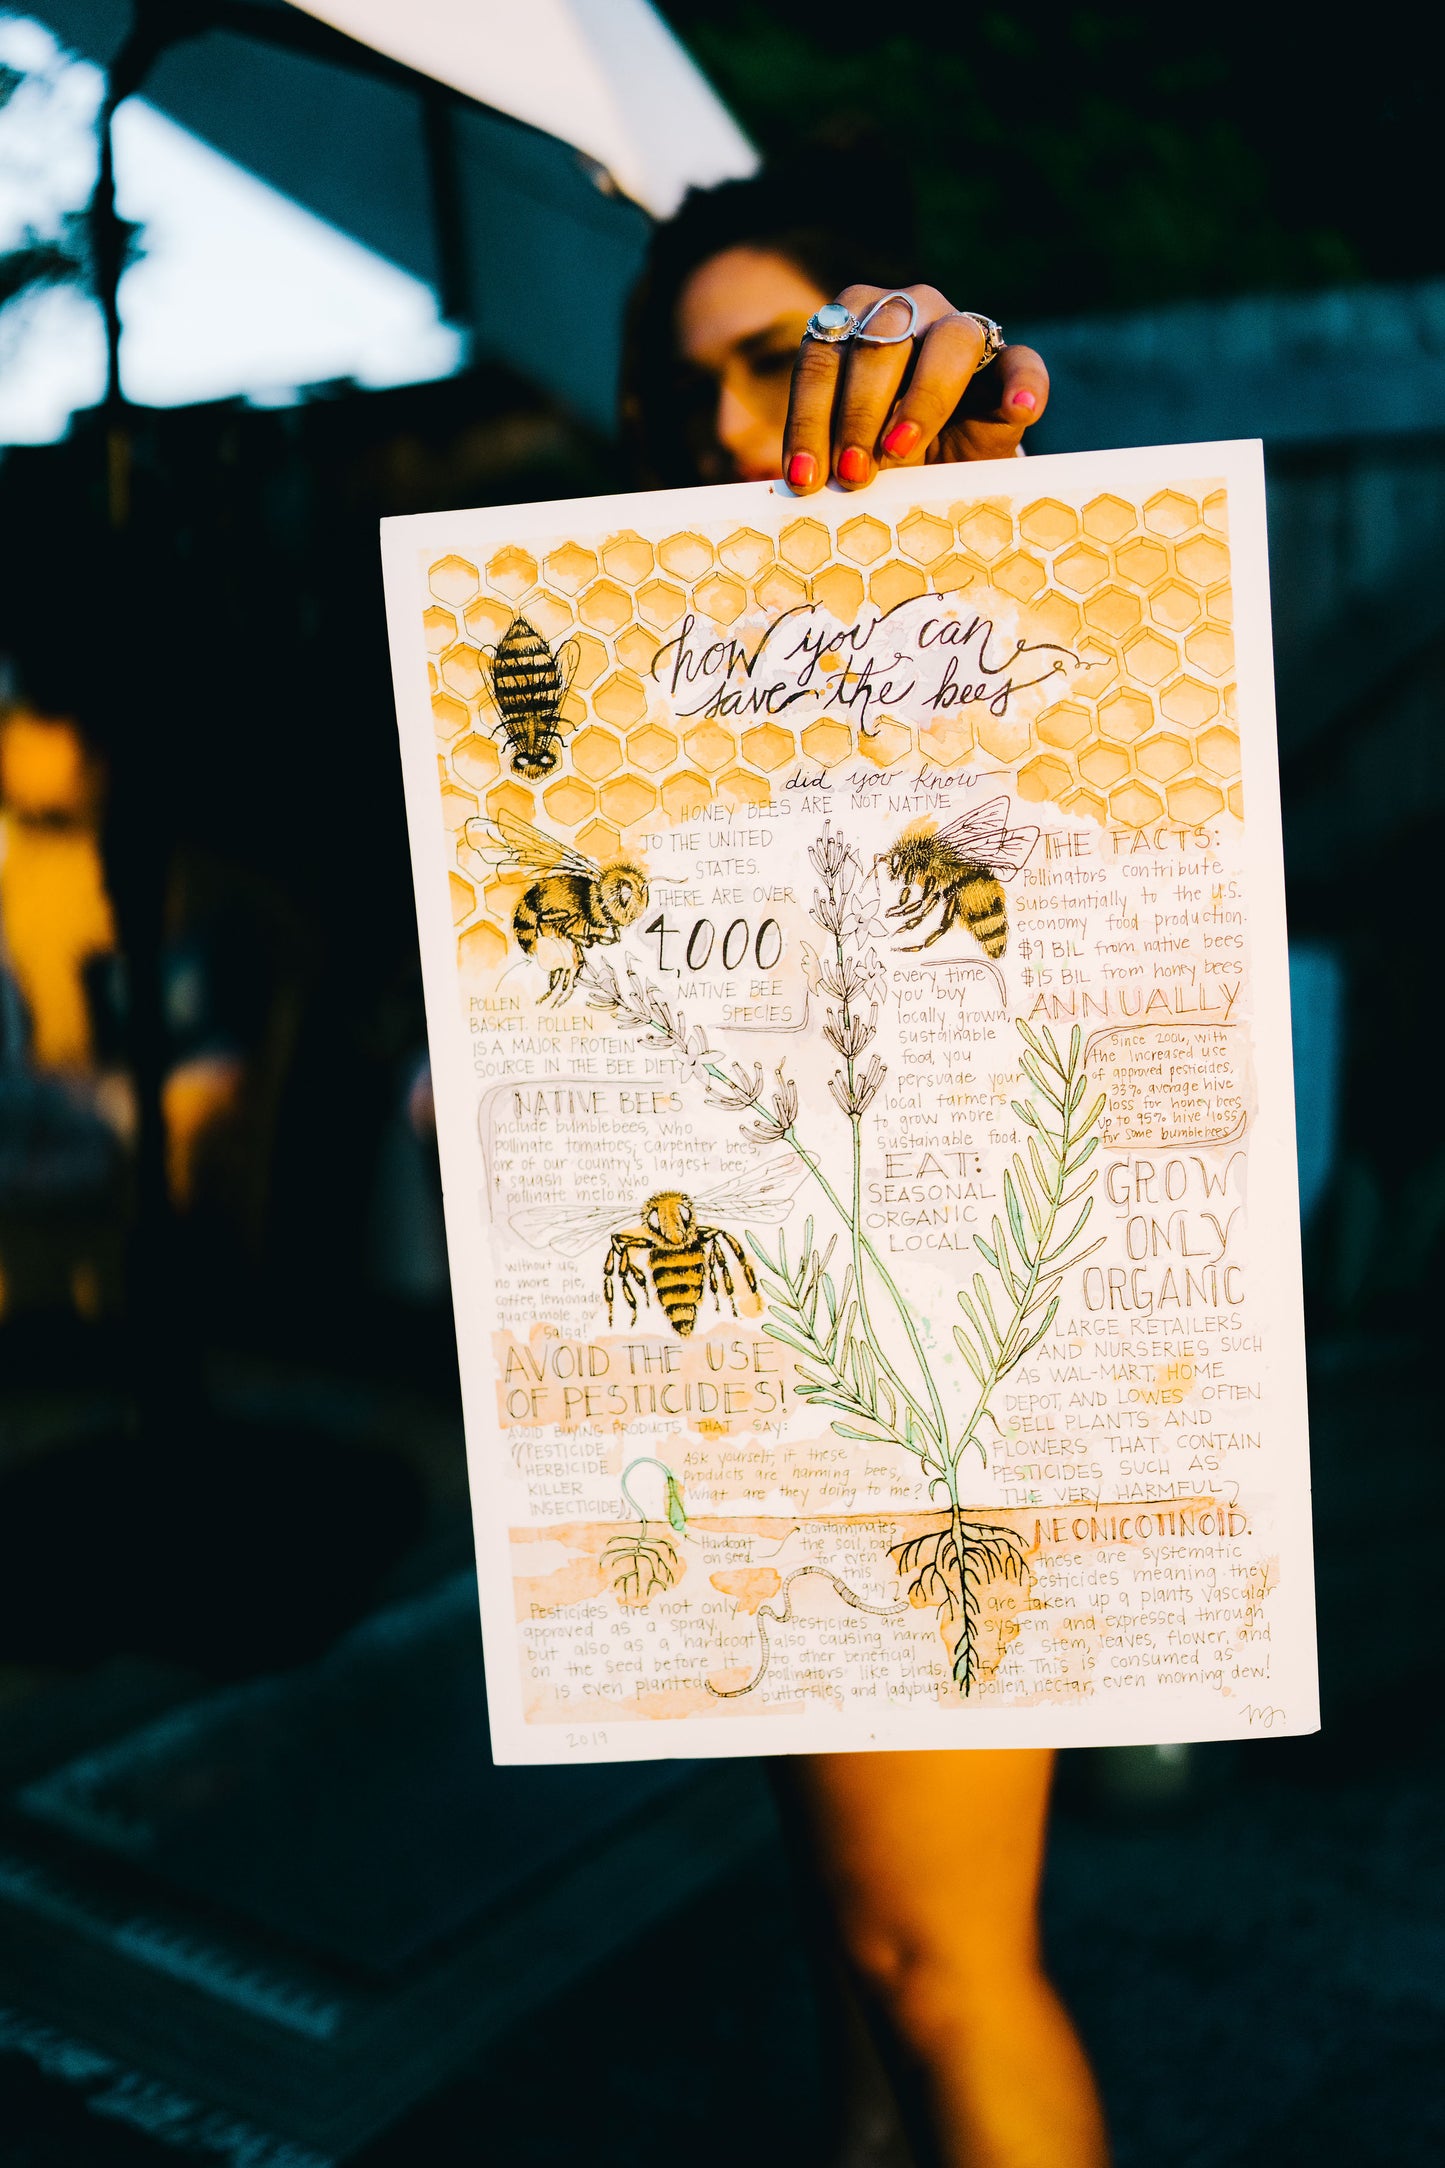 how you can
save the bees
did you know
HONEY BEES ARE NOT NATIVE
TO THE UNITED
STATES.
THERE ARE OVER
4,000
NATIVE BEE
SPECIES
POLLEN
BASKET. POLLEN
IS A MAJOR PROTEIN
SOURCE IN THE BEE DIET
NATIVE BEES
include bumblebees, who
pollinate tomatoes; carpenter bees,
one of our country's largest bee;
& squash bees, who
pollinate melons.
without us,
no more pie,
coffee, lemonade,
guacamole, or
salsa!
AVOID THE USE
OF PESTICIDES!
AVOID BUYING PRODUCTS THAT SAY:
"PESTICIDE
HERBICIDE
KILLER
INSECTICIDE"
Ask yourself, if these
products are harming bees,
what are they doing to me?
Hardcoat
on seed
contaminates
the soil, bad
for even
this
guy?
Pesticides are not only
approved as a spray,
but also as a hardcoat
on the seed before it
is even planted.
Pesticides are
also causing harm
to other beneficial
pollinators like birds,
butterflies, and ladybugs.
THE FACTS:
Pollinators contribute
substantially to the U.S.
economy food production.
$9 BIL from native bees
$15 BIL from honey bees
ANNUALLY
every time
you buy
locally grown,
sustainable
food, you
persuade your
local farmers
to grow more
sustainable food.
EAT:
SEASONAL
ORGANIC
LOCAL
Since 2006, with
the increased use
of approved pesticides,
33% average hive
loss for honey bees
up to 95% hive loss
for some bumblebees
GROW
ONLY
ORGANIC
LARGE RETAILERS
AND NURSERIES SUCH
AS WAL-MART, HOME
DEPOT, AND LOWES OFTEN
SELL PLANTS AND
FLOWERS THAT CONTAIN
PESTICIDES SUCH AS
THE VERY HARMFUL
NEONICOTINOID.
these are systematic
pesticides meaning they
are taken up a plants vascular
system and expressed through
the stem, leaves, flower, and
fruit. This is consumed as
pollen, nectar, even morning dew!
2019